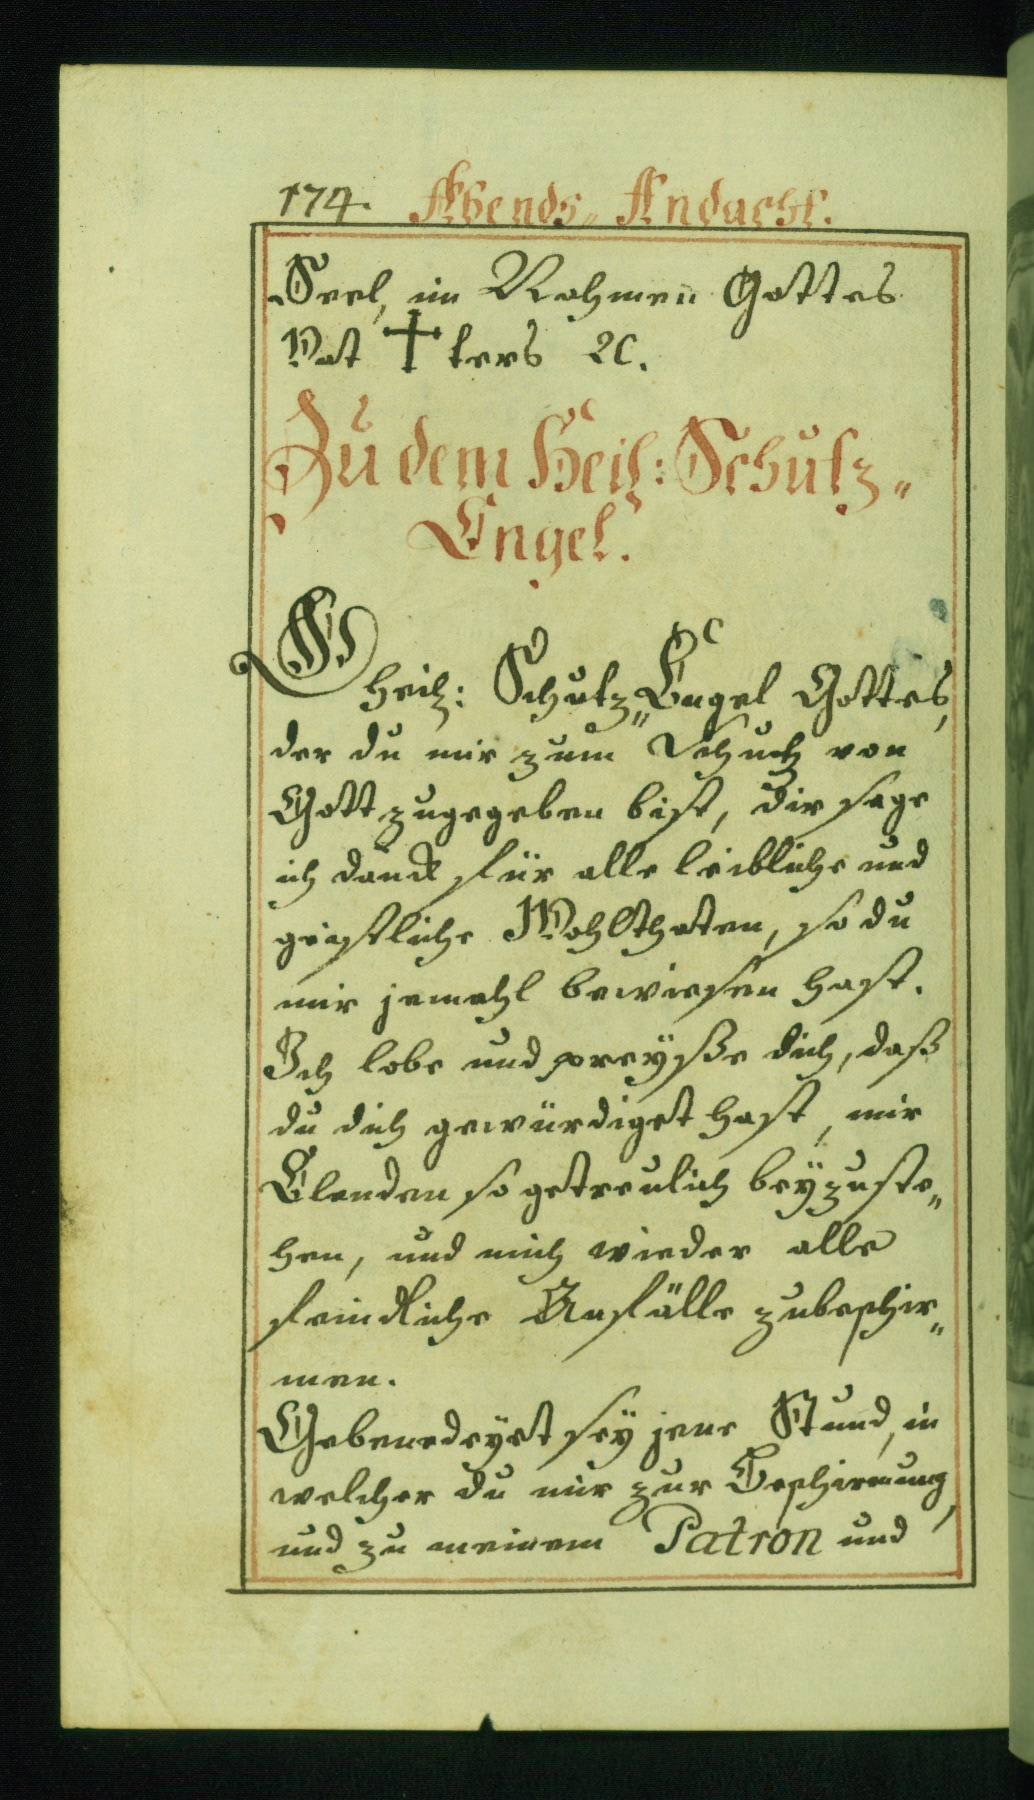 174. Abends„ Andacht.
Seel, im Nahmen Gottes
Vat ✝ ters ꝛc.
Zu dem Heil: Schutz„
Engel.
O
heil: Schutz„Engel Gottes,
der du mir zum Schutz von
Gott zugegeben bist, dir sage
ich danck für alle leibliche und
geistliche Wohlthaten, so du
mir jemahl bewiesen hast.
Ich lobe und preysse dich, daß
du dich gewürdiget hast, mir
Elenden so getreulich beyzuste„
hen, und mich wieder alle
feindliche Anfälle zubeschir„
men.
Gebenedeyet sey jene Stund, in
welcher du mir zur Beschirmung,
und zu meinem Patron und